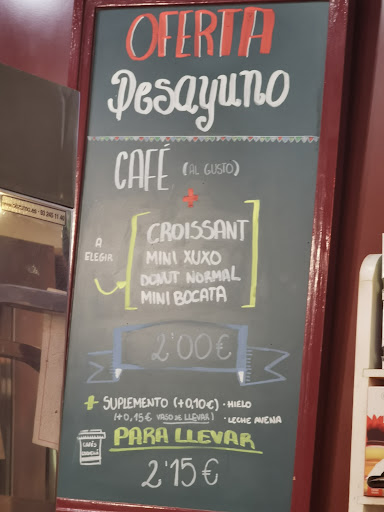 OFERTA
Desayuno
CAFÉ (AL GUSTO)
+
A ELEGIR
CROISSANT
MINI XUXO
DONUT NORMAL
MINI BOCATA
2'00€
+ SUPLEMENTO (+0,10€) · HIELO
(+0,15€ VASO DE LLEVAR) · LECHE AVENA
PARA LLEVAR
2'15€